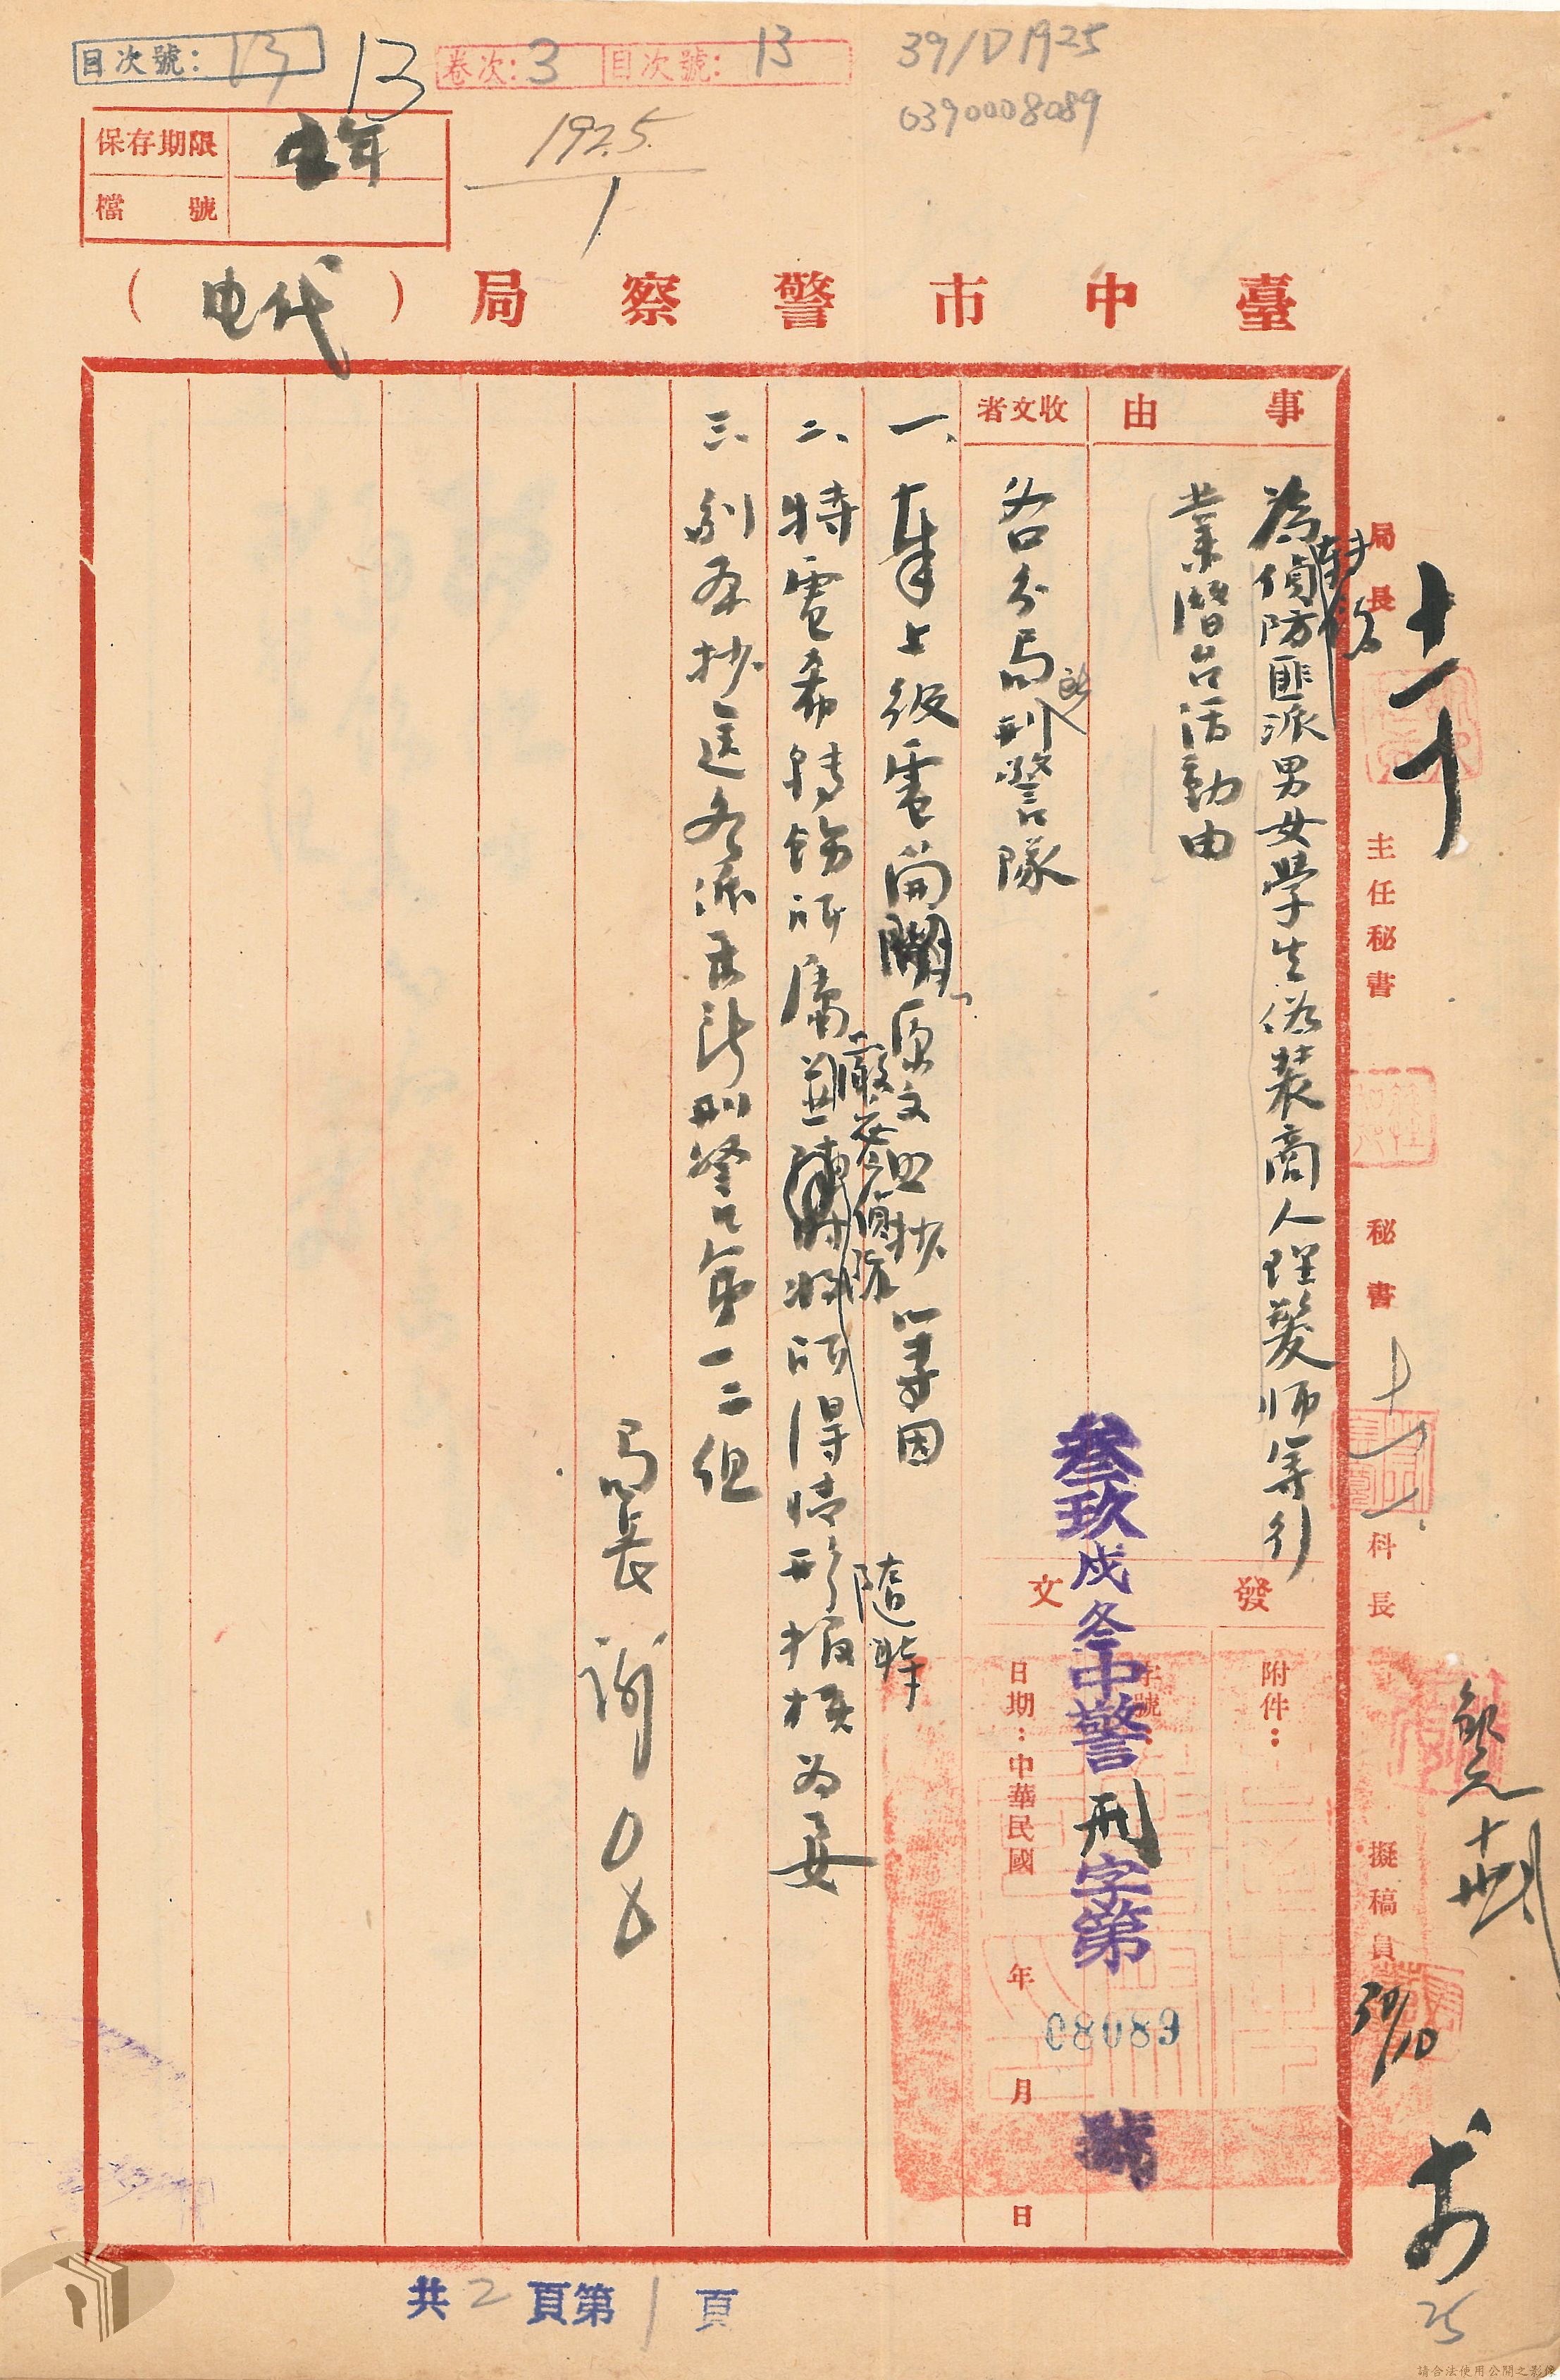 目次號：13
13
卷次：3 目次號：13
39/D1925
0390008089
保存期限
年
檔號
1925
1
臺中市警察局（电代）
事由
為偵防匪派男女學生偽裝商人理髮師等行
業潛台活動由
收文者
各分局刑警隊
發文
附件：
字號：
日期：中華民國 年 月 日
叁玖戌冬中警刑字第 08089 號
一、奉上級電開「原文照抄」等因
二、特電希轉飭所屬嚴密偵防並將所得情形隨時報核為要
三、副本抄送各派出所刑警隊第一二組
局長 謝〇〇
局長
主任秘書
秘書
科長
擬稿員
30/10
25
共2頁第1頁
請合法使用公開之影像